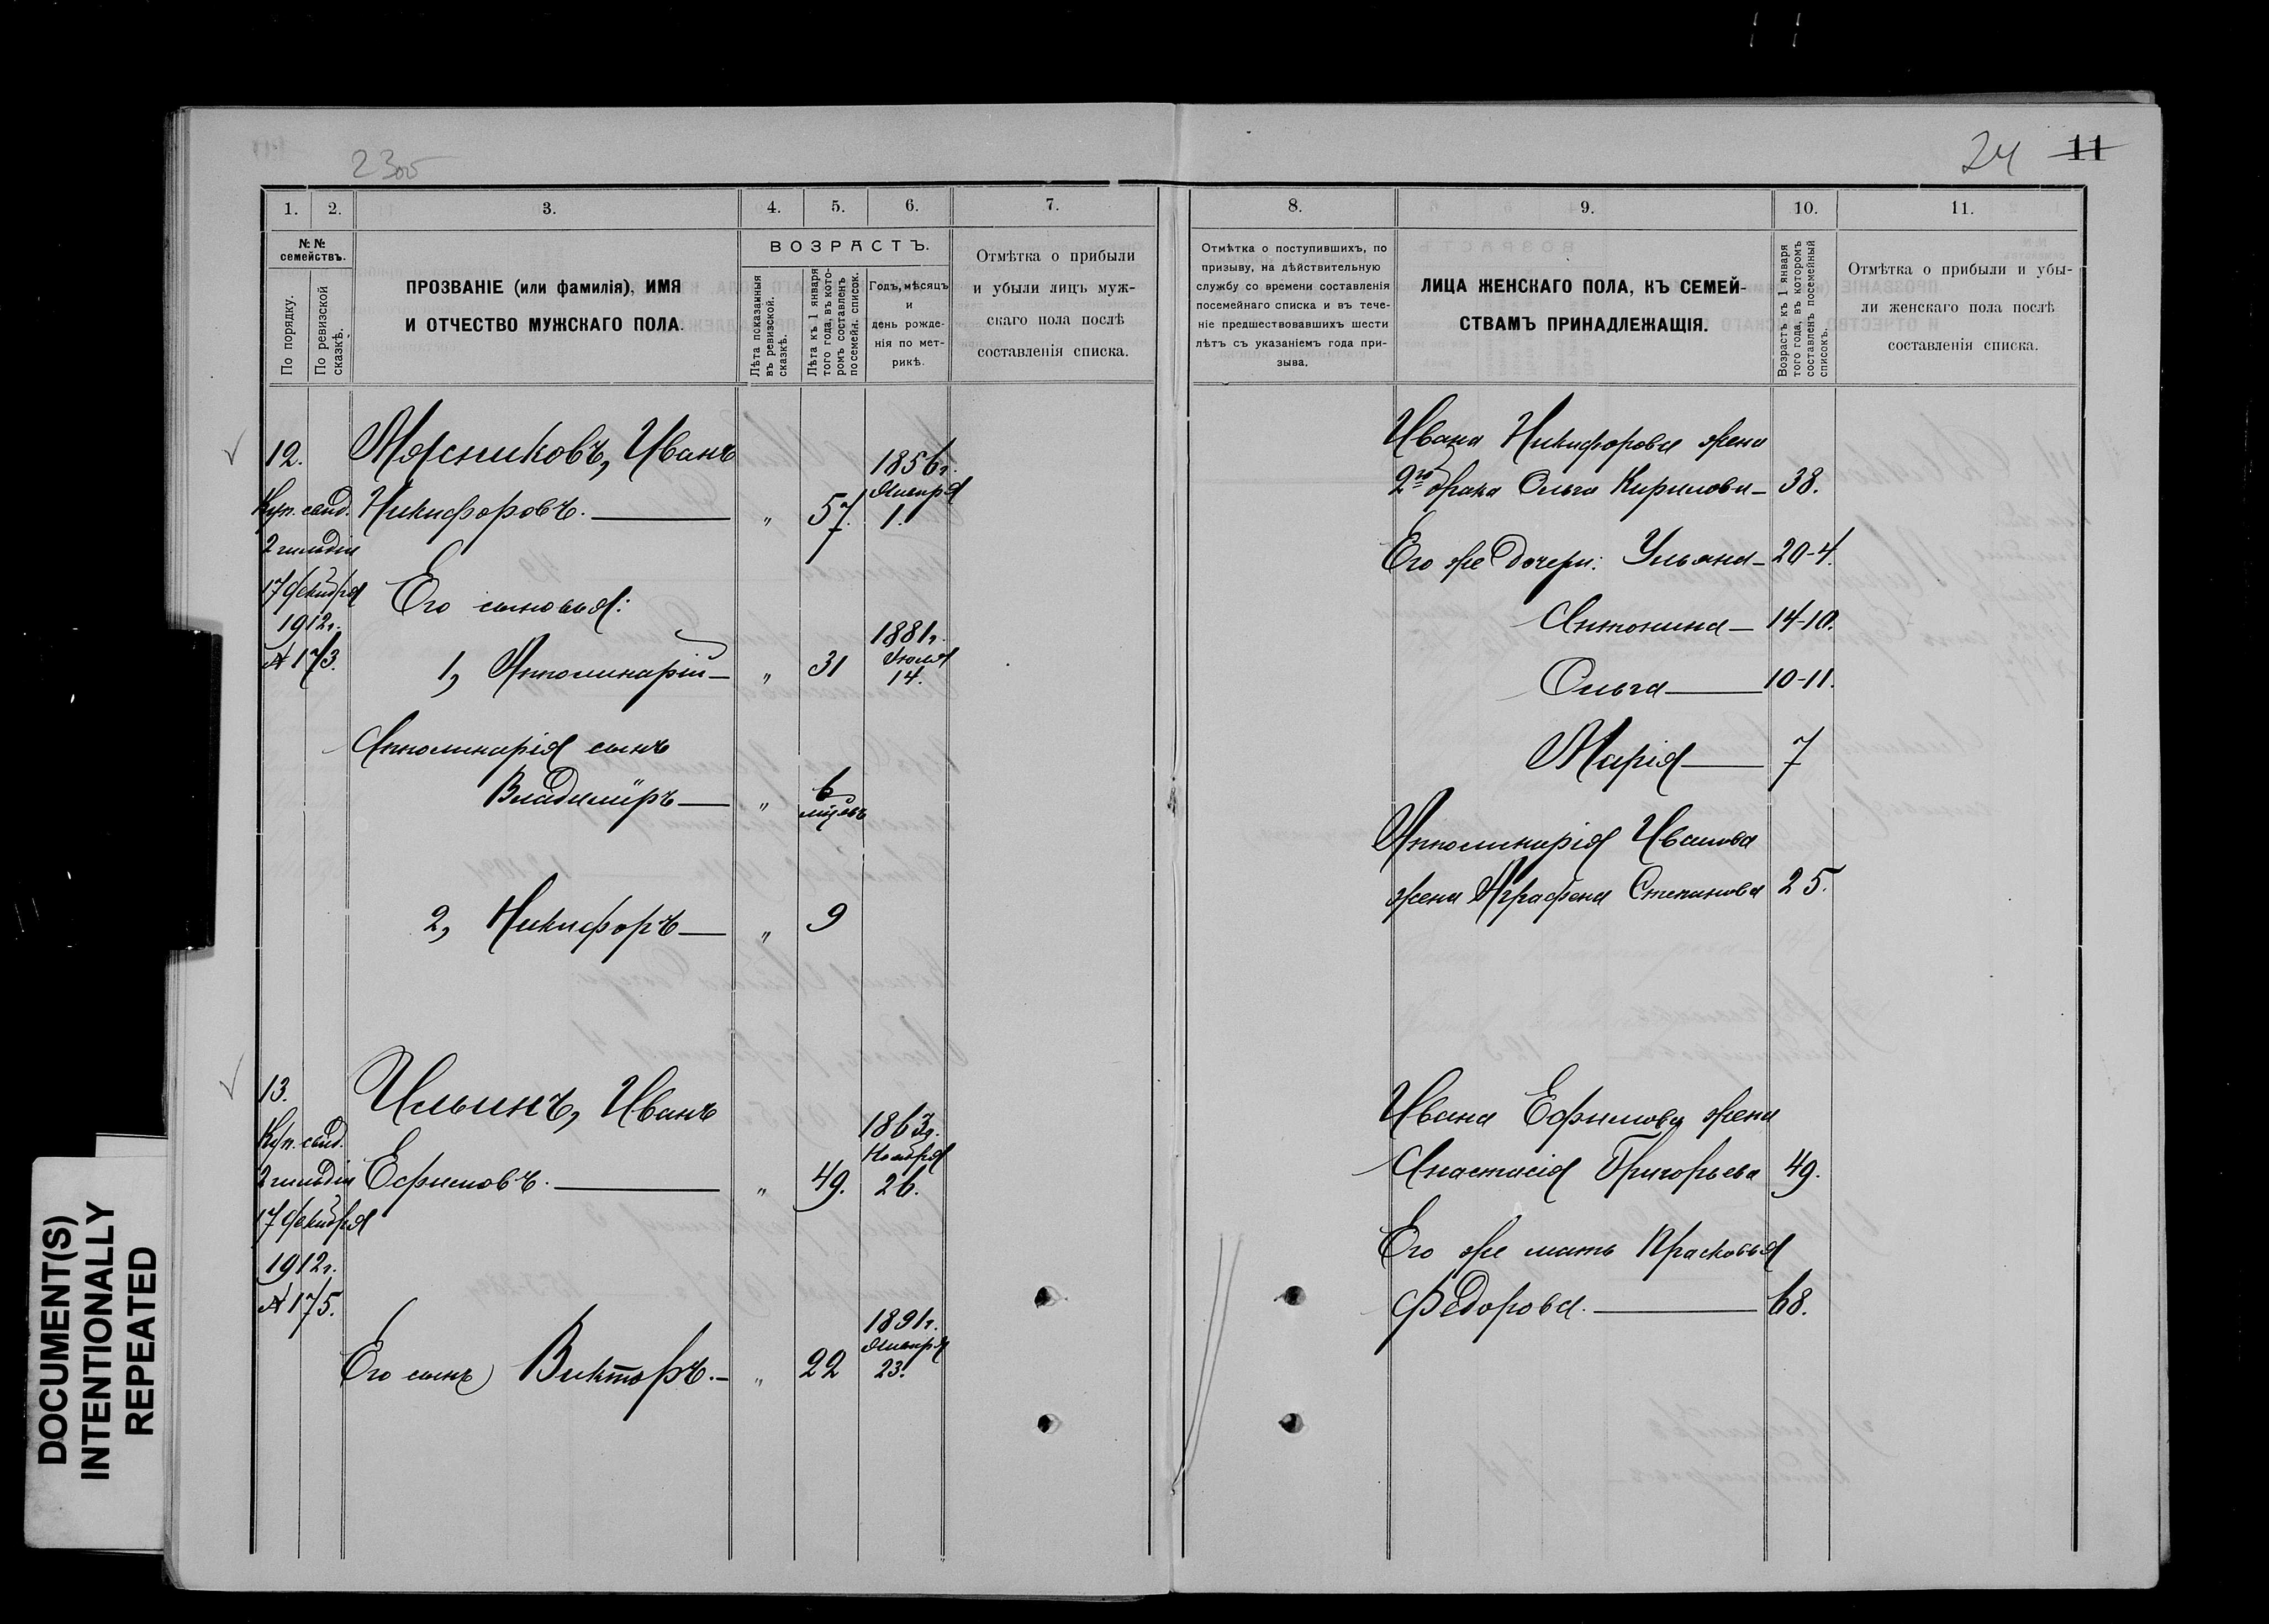 2300
24 11
1. 2. 3. 4. 5. 6. 7.
№ №
семействъ.
По порядку.
По ревизской
сказкѣ.
ПРОЗВАНІЕ (или фамилія), ИМЯ
И ОТЧЕСТВО МУЖСКАГО ПОЛА.
ВОЗРАСТЪ.
Лѣта показанныя
въ ревизской.
сказкѣ.
Лѣта къ 1 января
того года, въ кото-
ромъ составленъ
по семейн. список.
Годъ, мѣсяцъ
и
день рожде-
нія по мет-
рикѣ.
Отмѣтка о прибыли
и убыли лицъ муж-
скаго пола послѣ
составленія списка.
12. Мясниковъ, Иванъ 1856г.
Января
Куп. свид. Никифоровъ. — " 57. 1.
2 гильдіи
17 Декабря Его сыновья:
1912г. 1881г.
Іюля
№ 173. 1, Апполинарій — " 31 14.
Апполинарія сынъ
Владиміръ — " 6
мѣсяц.
2, Никифоръ — " 9
13. Ильинъ, Иванъ 1863г.
Куп. свид. Ноября
2 гильдіи Ефимовъ. — " 49. 26.
17 Декабря
1912г.
№ 175. 1891г.
Января
Его сынъ Викторъ. — " 22 23.
8. 9. 10. 11.
Отмѣтка о поступившихъ, по
призыву, на дѣйствительную
службу со времени составленія
посемейнаго списка и въ тече-
ніе предшествовавшихъ шести
лѣтъ съ указаніемъ года при-
зыва.
ЛИЦА ЖЕНСКАГО ПОЛА, КЪ СЕМЕЙ-
СТВАМЪ ПРИНАДЛЕЖАЩІЯ.
Возрастъ къ 1 января
того года, въ которомъ
составленъ посемейный
списокъ.
Отмѣтка о прибыли и убы-
ли женскаго пола послѣ
составленія списка.
Ивана Никифорова жена
2го брака Ольга Кирилова — 38.
Его же дочери: Ульяна — 20-4.
Антонина — 14-10.
Ольга — 10-11.
Марія — 7
Апполинарія Иванова
жена Аграфена Степанова 25.
Ивана Ефимова жена
Анастасія Григорьева 49.
Его же мать Прасковья
Федорова. — 68.
DOCUMENT(S)
INTENTIONALLY
REPEATED